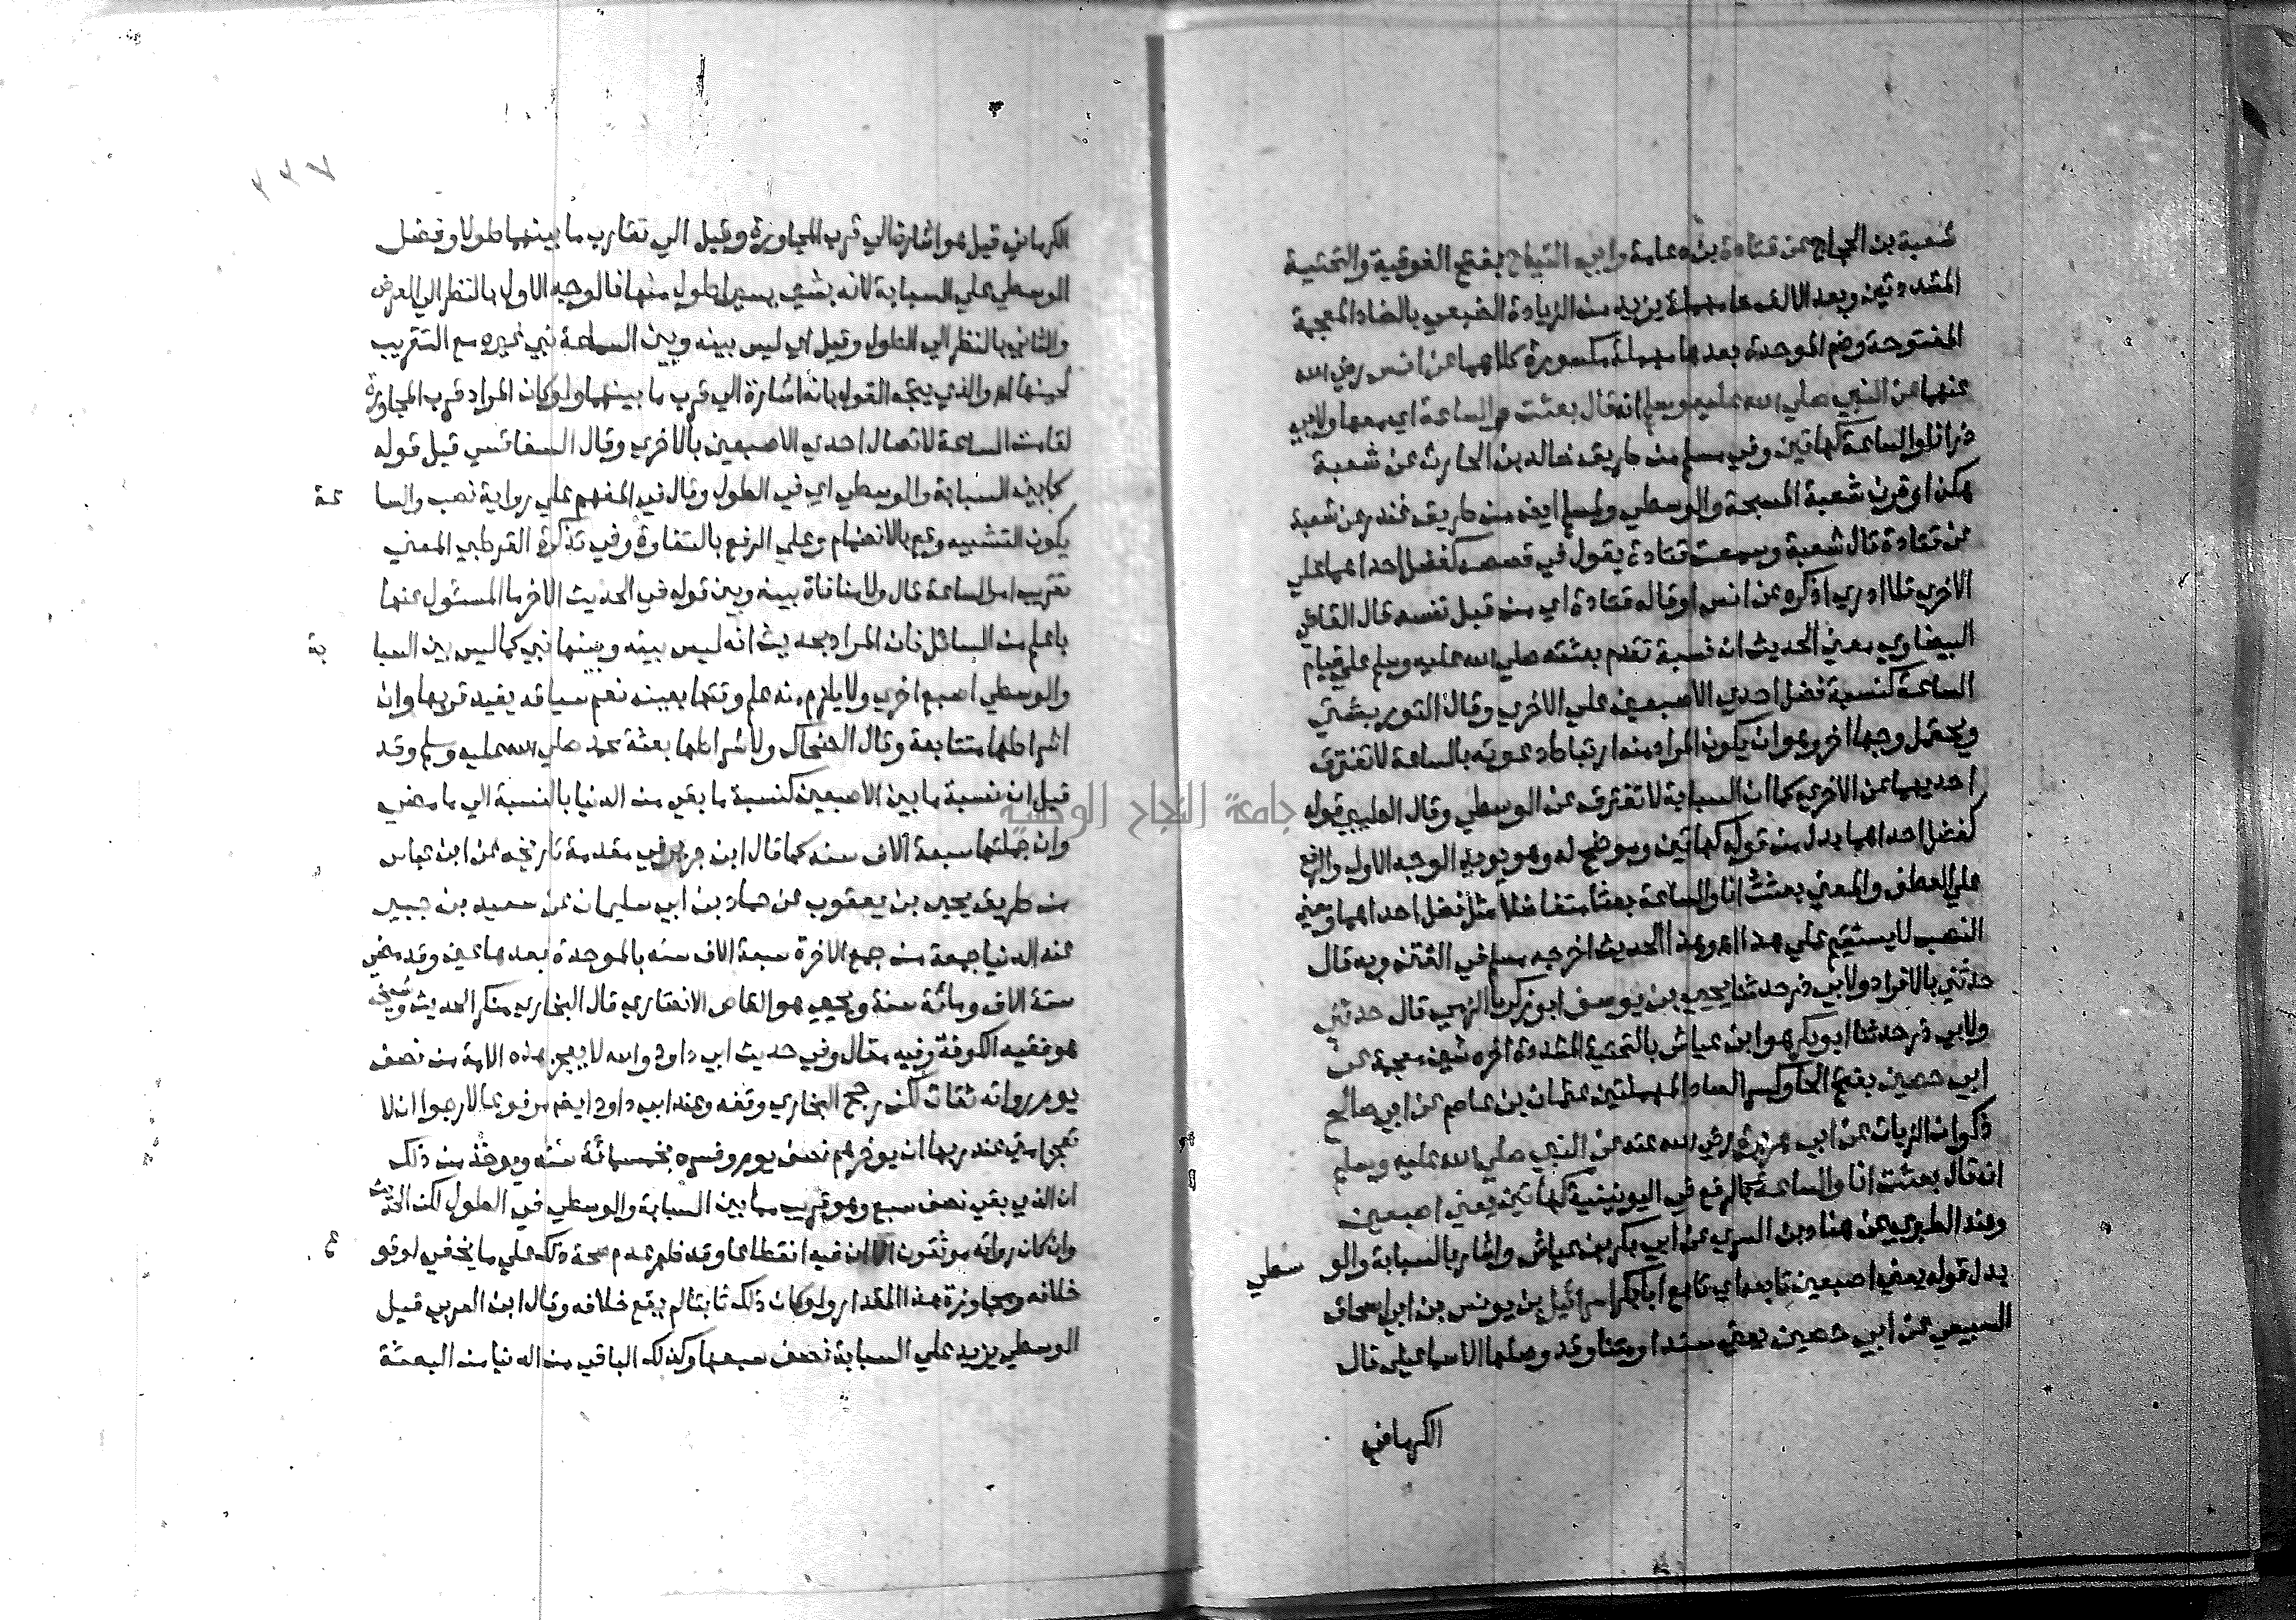 شعبة بن الحجاج عن قتادة بن دعامة وابي التياح بفتح الفوقية والتحتية
المشددتين وبعد الالف حا مهملة يزيد من الزيادة الضبعي بالضاد المعجمة
المفتوحة وضم الموحدة بعدها مهملة مكسورة كلاهما عن انس رضي الله
عنهما عن النبي صلي الله عليه وسلم انه قال بعثت والساعة اي معها ولابي
ذر انا والساعة كهاتين وفي مسلم من طريق خالد بن الحارث عن شعبة
هكذا وقرن شعبة المسبحة والوسطي ولمسلم ايضا من طريق غندر عن شعبة
عن قتادة قال شعبة وسمعت قتادة يقول في قصصه كفضل احداهما علي
الاخري فلا ادري اذكره عن انس او قاله قتادة اي من قبل نفسه قال القاضي
البيضاوي معني الحديث ان نسبة تقدم بعثته صلي الله عليه وسلم علي قيام
الساعة كنسبة فضل احدي الاصبعين علي الاخري وقال التوربشتي
ويحتمل وجها اخر وهو ان يكون المراد منه ارتباط دعوته بالساعة لا تفترق
احديهما عن الاخري كما ان السبابة لا تفترق عن الوسطي وقال الطيبي قوله
كفضل احداهما بدل من قوله كهاتين وموضح له وهو يويد الوجه الاول والرفع
علي العطف والمعني بعثت انا والساعة بعثا متفاضلا مثل فضل احداهما ومعني
النصب لا يستقيم علي هذا اه وهذا الحديث اخرجه مسلم في الفتن وبه قال
حدثني بالافراد ولابي ذر حدثنا يحيي بن يوسف ابو زكريا الزمي قال حدثني
ولابي ذر حدثنا ابو بكر هو ابن عياش بالتحتية المشددة اخره شين معجمة عن
ابي حصين بفتح الحا وكسر الصاد المهملتين عثمان بن عاصم عن ابي صالح
ذكوان الزيات عن ابي هريرة رضي الله عنه عن النبي صلي الله عليه وسلم
انه قال بعثت انا والساعة بالرفع في اليونينية كهاتين يعني اصبعين
وعند الطبري عن هناد بن السري عن ابي بكر بن عياش واشار بالسبابة والو سطي
بدل قوله يعني اصبعين تابعه اي تابع ابا بكر اسرائيل بن يونس بن ابي اسحاق
السبيعي عن ابي حصين يعني سندا ومتنا وقد وصلها الاسماعيلي قال
الكرماني
٢٢٧
الكرماني قيل هو اشارة الي قرب المجاورة وقيل الي تقارب ما بينهما طولا وفضل
الوسطي علي السبابة لانه بشي يسير اطول منها فالوجه الاول بالنظر الي العرض
والثاني بالنظر الي الطول وقيل اي ليس بينه وبين الساعة نبي غيره مع التقريب
لحينها اه والذي يتجه القول بانه اشارة الي قرب ما بينهما ولو كان المراد قرب المجاورة
لقامت الساعة لاتصال احدي الاصبعين بالاخري وقال السفاقسي قيل قوله
كما بين السبابة والوسطي اي في الطول وقال في المفهم علي رواية نصب والسا عة
يكون التشبيه وقع بالانضمام وعلي الرفع بالتفاوة وفي تذكرة القرطبي المعني
تقريب امر الساعة قال ولا منافاة بينه وبين قوله في الحديث الاخر ما المسئول عنها
باعلم من السائل فان المراد بحديث انه ليس بينه وبينها نبي كما ليس بين السبا بة
والوسطي اصبع اخري ولا يلزم منه علم وقتها بعينه نعم سياقه يفيد قربها وان
اشراطها متتابعة وقال الضحاك ولا شراطها بعثة محمد صلي الله عليه وسلم وقد
قيل ان نسبة ما بين الاصبعين كنسبة ما بقي من الدنيا بالنسبة الي ما مضي
وان جملتها سبعة الاف سنه كما قال ابن جرير في مقدمة تاريخه عن ابن عباس
من طريق يحيي بن يعقوب عن حماد بن ابي سليمان عن سعيد بن جبير
عنه الدنيا جمعة من جمع الاخرة سبعة الاف سنه بالموحدة بعدها عين وقد مضي
ستة الاف ومائة سنة ويحيي هو القاص الانصاري قال البخاري منكر الحديث وشيخه
هو فقيه الكوفة وفيه مقال وفي حديث ابي داود والله لا يعجز هذه الامة من نصف
يوم رواته ثقات لكن رجح البخاري وقفه وعند ابي داود ايضا مرفوعا لارجوا ان لا
تعجز امتي عند ربها ان يوخرهم نصف يوم وفسره بخمسمائة سنه ويوخذ من ذلك
ان الذي بقي نصف سبع وهو قريب مما بين السبابة والوسطي في الطول لكن الحديث
وان كان رواته موثقون الا ان فيه انقطاعا وقد ظهر عدم صحة ذلك علي ما لا يخفي لوقو ع
خلافه ومجاوزة هذا المقدار ولو كان ذلك ثابتا لم يقع خلافه وقال ابن العربي قيل
الوسطي يزيد علي السبابة نصف سبعها وكذلك الباقي من الدنيا من البعثة
جامعة النجاح الوطنية